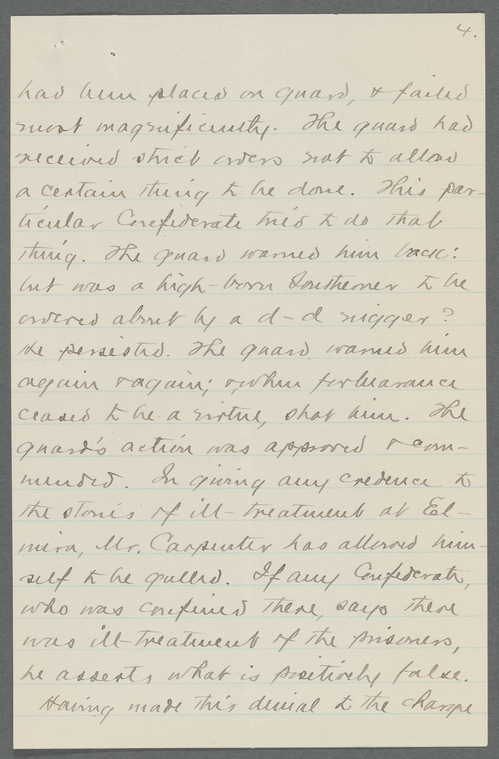 4.
had been placed on guard, & failed
most magnificently. The guard had
received strict orders not to allow
a certain thing to be done. This par-
ticular Confederate tried to do that
thing. The guard warned him back:
but was a high-born Southerner to be
ordered about by a d--d nigger?
He persisted. The guard warned him
again & again; &, when forbearance
ceased to be a virtue, shot him. The
guard's action was approved & com-
mended. In giving any credence to
the stories of ill-treatment at El-
mira, Mr. Carpenter has allowed him-
self to be gulled. If any Confederate,
who was confined there, says there
was ill-treatment of the prisoners,
he asserts what is positively false.
Having made this denial to the charge